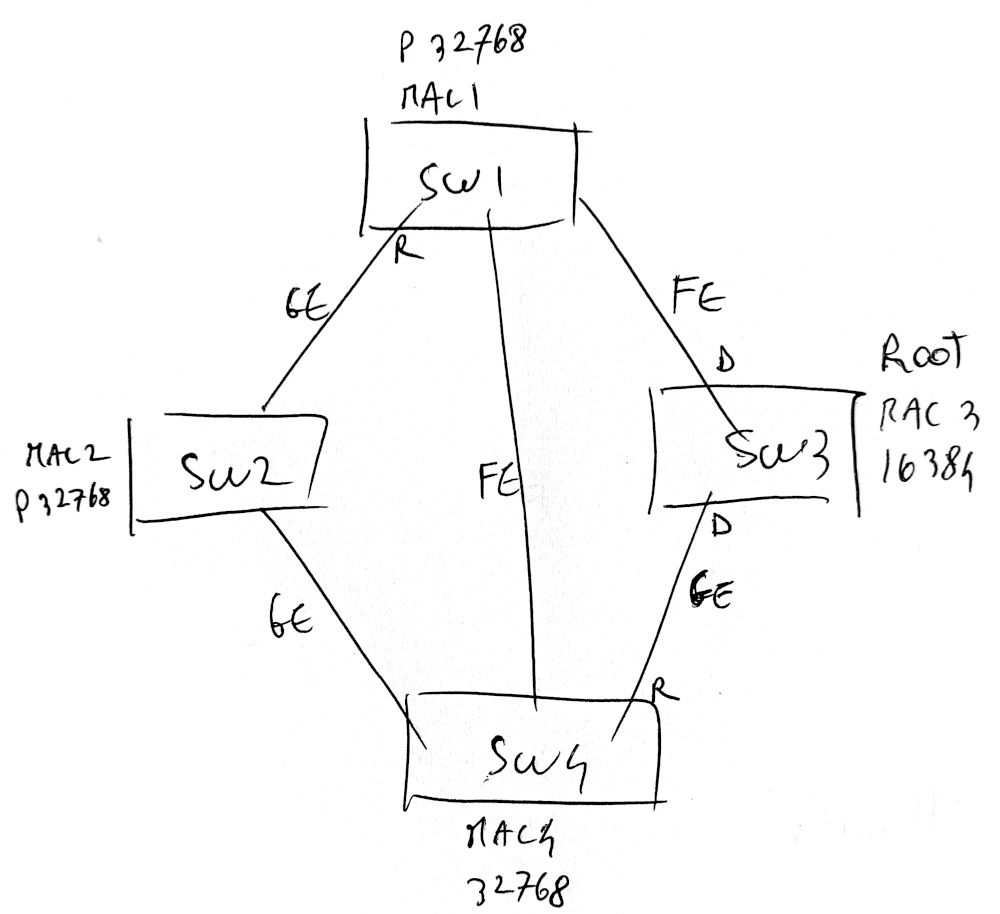 P 32768
MAC1
SW1
R
GE
FE
D
Root
MAC 3
16384
SW3
D
GE
MAC2
P 32768
SW2
FE
GE
R
SW4
MAC4
32768